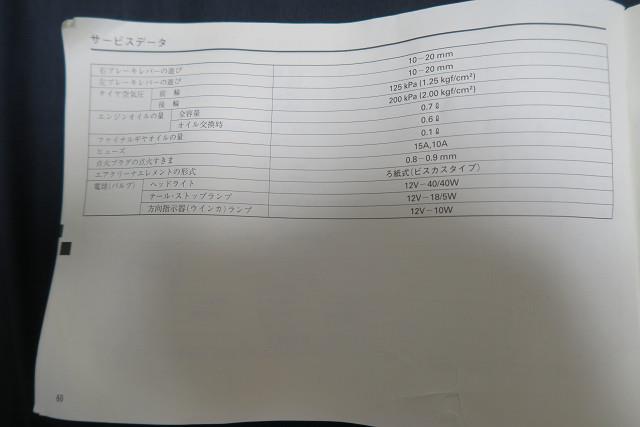 サービスデータ
右ブレーキレバーの遊び 10－20mm
左ブレーキレバーの遊び 10－20mm
タイヤ空気圧 前輪 125 kPa (1.25 kgf/cm²)
後輪 200 kPa (2.00 kgf/cm²)
エンジンオイルの量 全容量 0.7ℓ
オイル交換時 0.6ℓ
ファイナルギヤオイルの量 0.1ℓ
ヒューズ 15A,10A
点火プラグの点火すきま 0.8－0.9mm
エアクリーナエレメントの形式 ろ紙式(ビスカスタイプ)
電球(バルブ) ヘッドライト 12V－40/40W
テール・ストップランプ 12V－18/5W
方向指示器(ウインカ)ランプ 12V－10W
60